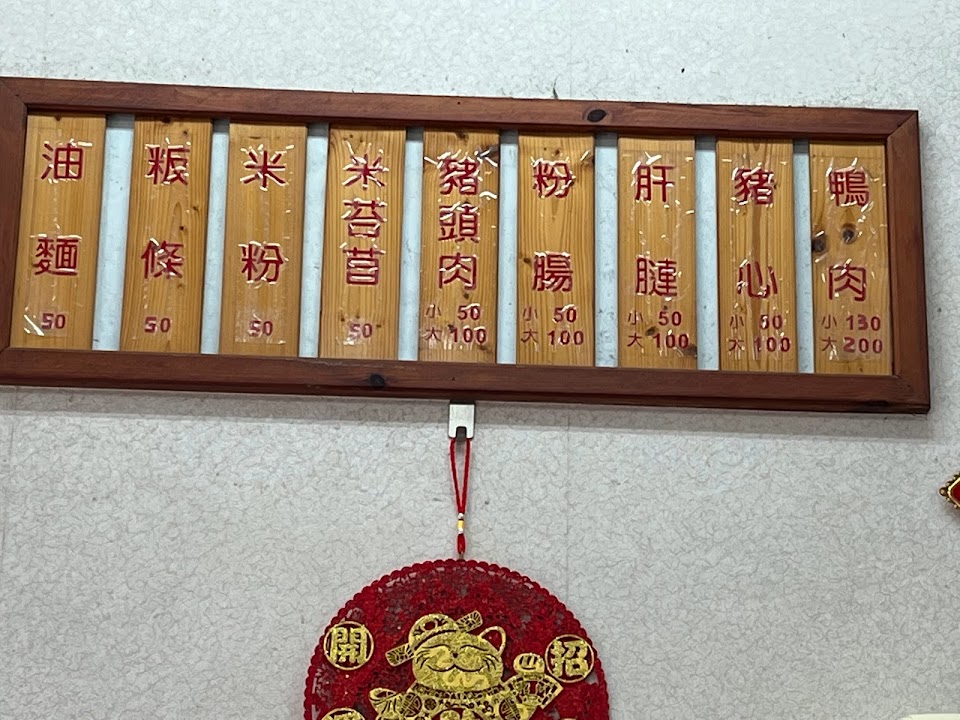 鴨肉
小 130
大 200
豬心
小 50
大 100
肝𦟪
小 50
大 100
粉腸
小 50
大 100
豬頭肉
小 50
大 100
米苔苜
50
米粉
50
粄條
50
油麵
50
招
開